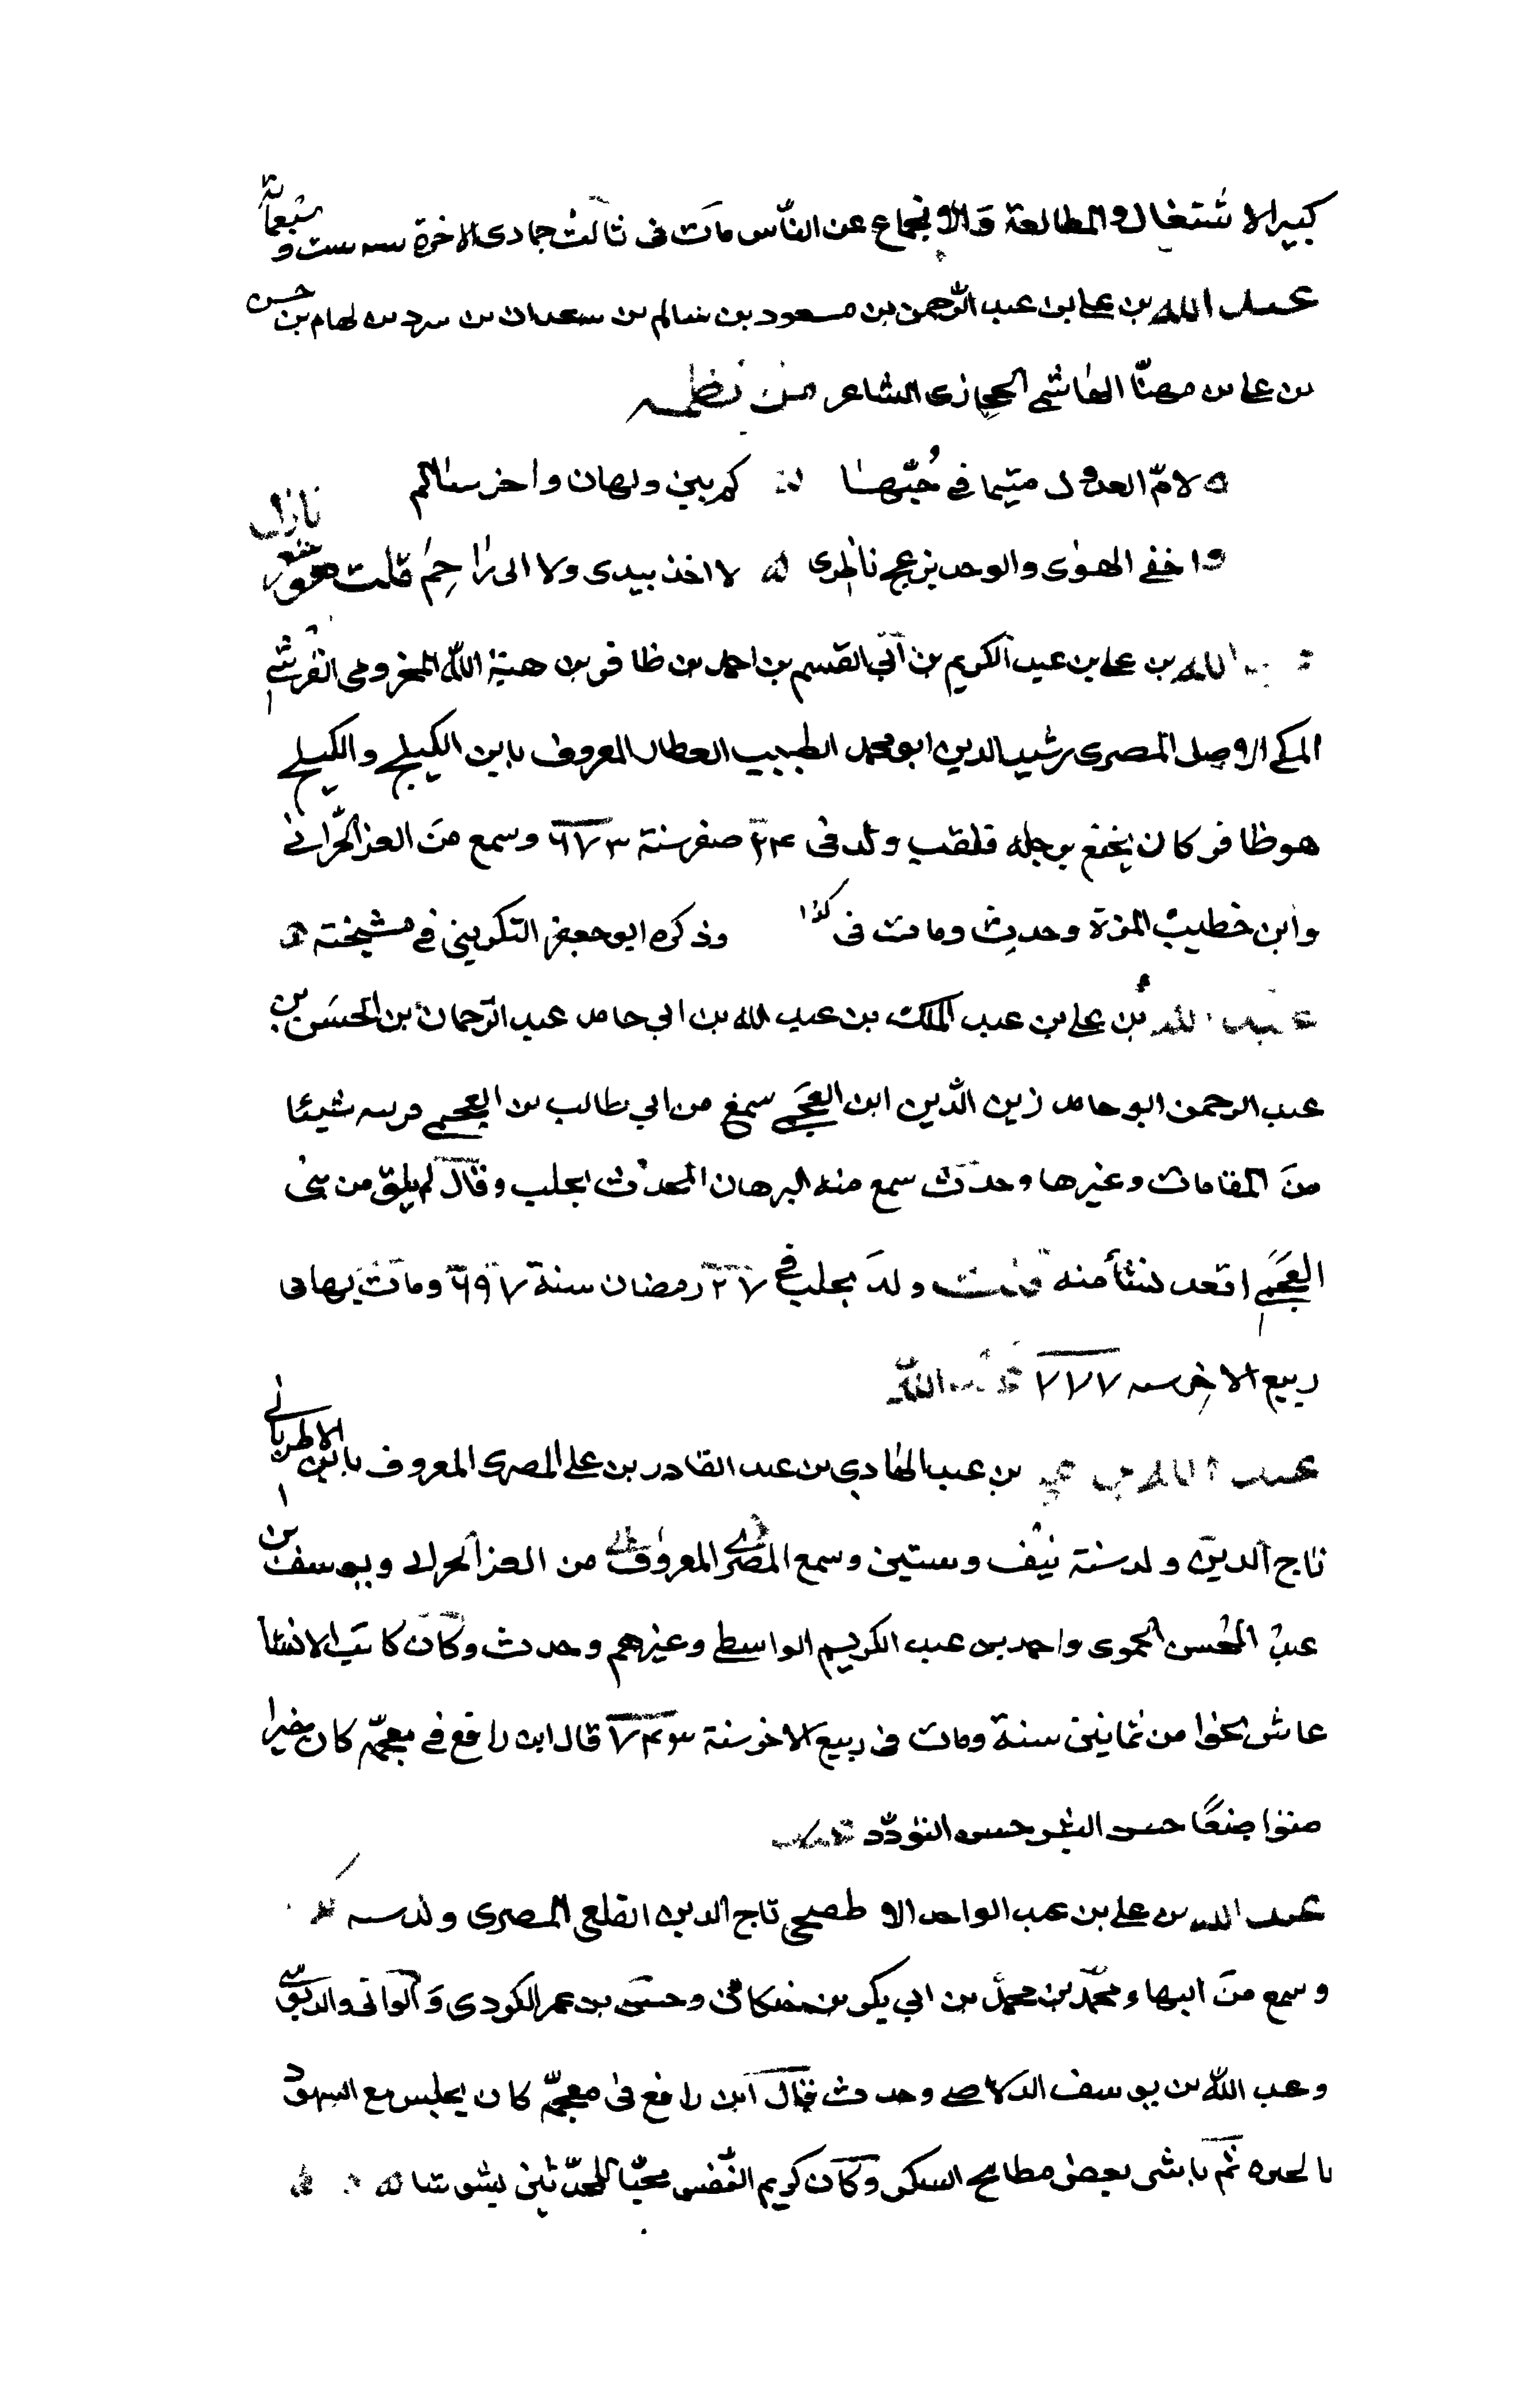 كبير الاشتغال والمطالعة والانجماع عن الناس مات في ثالث جمادى الاخرة سنه ست وسبعمائة
عبد الله بن علي بن عبد الرحمن بن مسعود بن سالم بن سعدان بن بن لهام بن حسن
بن علي بن مهنّا الهاشمي الحجازي الشاعر من نظمه
لامّ العذول متيما في حُبّها كم بين ولهان واخر سالم
واخفى الهوى والوجد ناظرى لا اخذ بيدى ولا الى راحِمُ قلت شعر نازل
الله بن علي بن عبد الكريم بن أبي القسم بن احمد بن ظافر بن هبة الله المخزومى القرشي
المكي الاصل المصرى رشيد الدين ابو محمد الطبيب العطار المعروف بابن الكيلج والكيلج
هو ظافر كان يخمع برجله فلقب ولد فى ٢٤ صفر سنة ٦٧٣ وسمع من العز الحرّاني
وابن خطيب المزة وحدث ومات فى كذا وذكره ابو جعفر التكريتي في مشيخته
عبد الله بن علي بن عبد الملك بن عبد الله بن ابي حامد عبد الرحمان بن الحسن بن
عبد الرحمن ابو حامد زين الدّين ابن العجمي سمع من ابي طالب بن العجمي شيئا
من المقامات وغيرها وحدّث سمع منه البرهان المحدّث بحلب وقال لم يلق من بنى
العجمي اقعد منه ولد بحلب في ٢٧ رمضان سنة ٦٩٧ ومات بها فى
ربيع الاخر سنه ٧٧٧ الله
عبد الله بن بن عبد الهادي بن عبد القادر بن علي المصرى المعروف بابن الاطرباني
تاج الدين ولد سنة نيّف وستين وسمع المصري المعروف من العز الحراني ويوسف بن
عبد المحسن الحموى واحمد بن عبد الكريم الواسطي وغيرهم وحدث وكان كاتب الانشا
عاش نحوا من ثمانين سنة ومات فى ربيع الاخر سنة ٧٤٣ قال ابن رافع في معجمه كان خيرا
حسن البشر حسن التودّد
عبد الله بن علي بن عبد الواحد تاج الدين القلعي المصرى ولد سنه
وسمع من البهاء محمد بن محمد بن ابي بكر بن وحسن بن عمر الكردى والوانى والدبوسي
وعبد الله بن يوسف الدلاصي وحدث قال ابن رافع فى معجمه كان يجلس مع الشهود
ثم باشر بعض مطابخ السكر وكان كريم النفس محبّا للمحدّثين